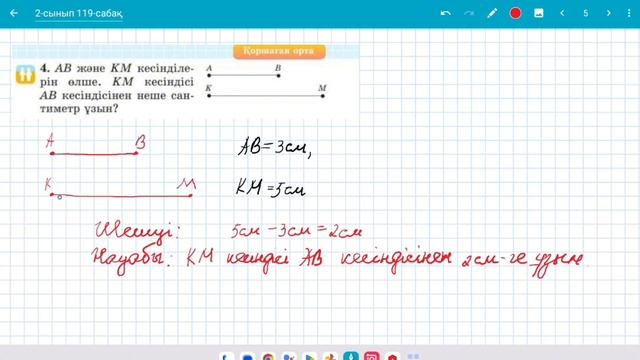 2-сынып 119-сабақ
5
Қоршаған орта
4. AB және KM кесінділе-
рін өлше. KM кесіндісі
AB кесіндісінен неше сан-
тиметр ұзын?
A B
K M
A B
AB = 3см,
K M
KM = 5см
Шешуі: 5см - 3см = 2см
Жауабы: KM кесіндісі AB кесіндісінен 2см-ге ұзын.